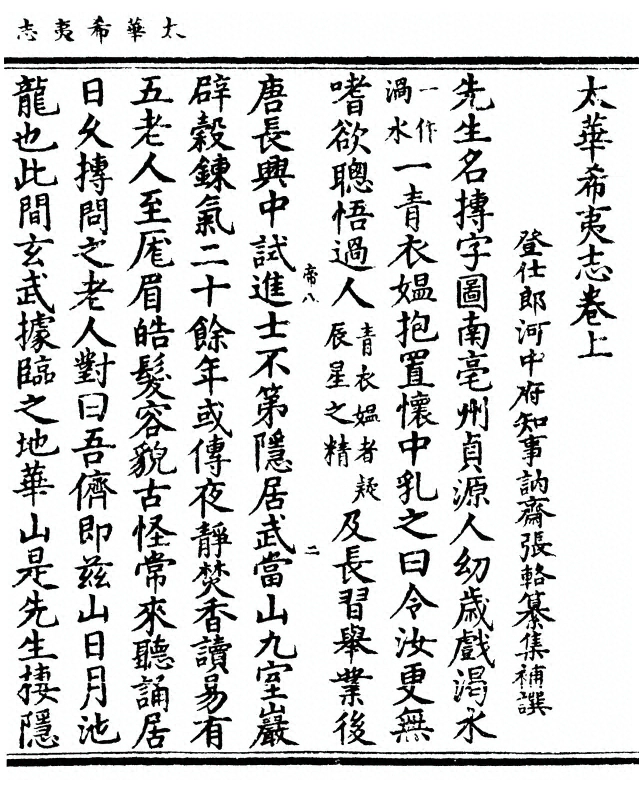 太華希夷志
太華希夷志卷上
登仕郎河中府知事訥齋張輅纂集補譔
先生名摶字圖南亳州貞源人幼歲戲渴水
一作渦水一青衣媪抱置懷中乳之曰令汝更無
嗜欲聰悟過人青衣媪者疑辰星之精及長習舉業後
唐長興中試進士不第隱居武當山九室巖
辟穀鍊氣二十餘年或傳夜靜焚香讀易有
五老人至厖眉皓髮容貌古怪常來聽誦居
日久摶問之老人對曰吾儕即玆山日月池
龍也此間玄武據臨之地華山是先生棲隱
帝八
二